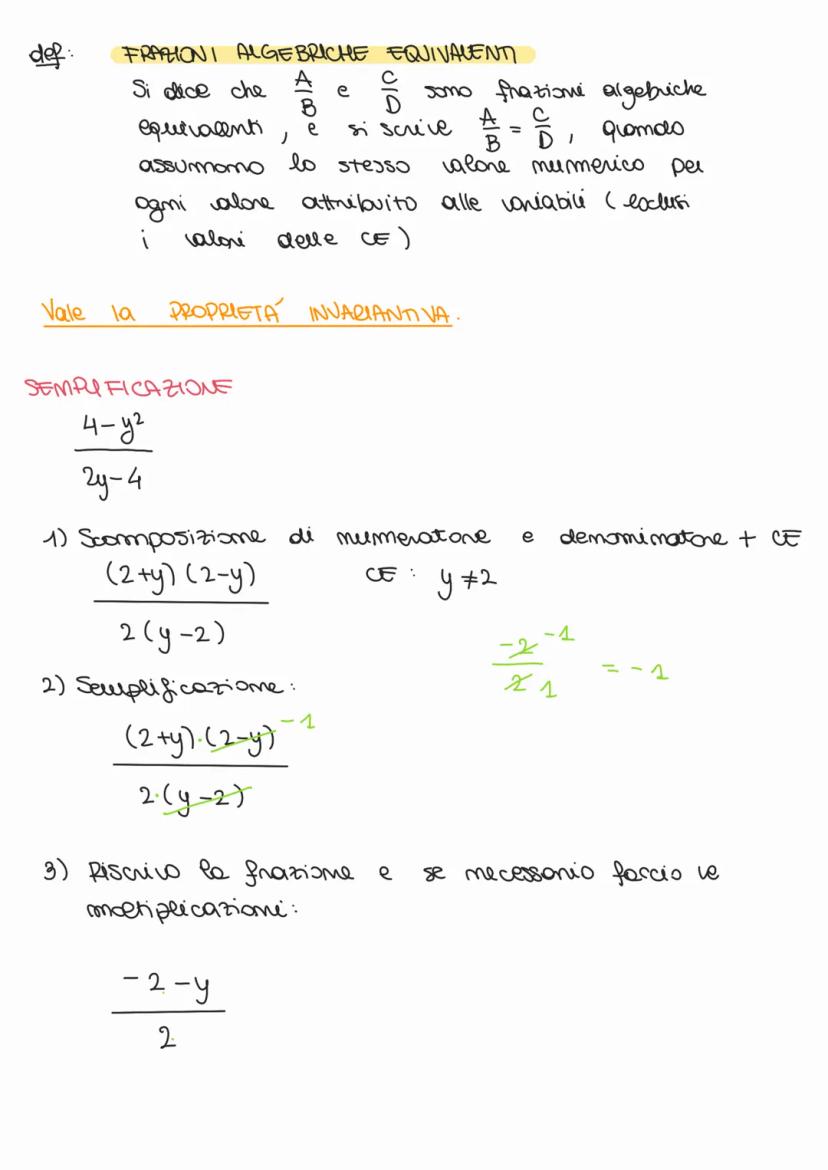 def: FRAZIONI ALGEBRICHE EQUIVALENTI
Si dice che A/B e C/D sono frazioni algebriche
equivalenti, e si scrive A/B = C/D, quando
assumono lo stesso valore numerico per
ogni valore attribuito alle variabili (esclusi
i valori delle CE)
Vale la PROPRIETÁ INVARIANTIVA.
SEMPLIFICAZIONE
4-y²
2y-4
1) Scomposizione di numeratore e denominatore + CE
(2+y)(2-y) CE: y≠2
2(y-2)
-2 -1
2 1 = -1
2) Semplificazione:
(2+y)·(2-y) -1
2·(y-2)
3) Riscrivo la frazione e se necessario faccio le
moltiplicazioni:
-2-y
2